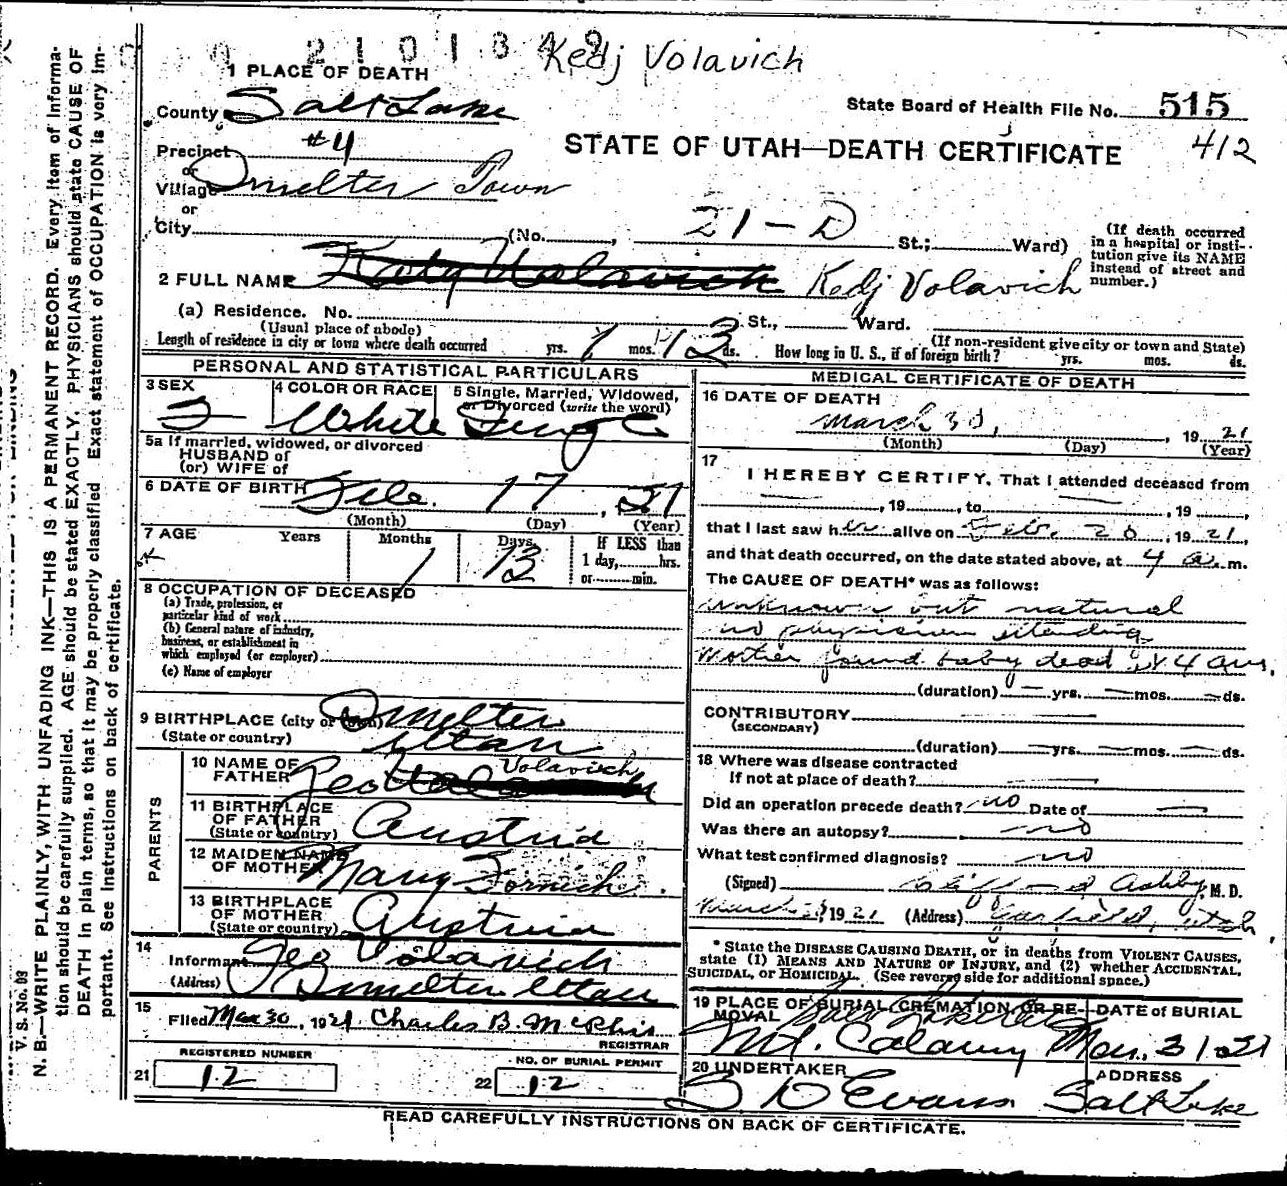 0 2 1 0 1 3 4 9
Kedj Volavich
1 PLACE OF DEATH
County Salt Lake
State Board of Health File No. 515
412
Precinct #4
STATE OF UTAH—DEATH CERTIFICATE
or
Village Smelter Town
or
City (No. , 21-D St.; Ward)
(If death occurred
in a hospital or insti-
tution give its NAME
instead of street and
number.)
2 FULL NAME Katy Volavich Kedj Volavich
(a) Residence. No. St., Ward.
(Usual place of abode) (If non-resident give city or town and State)
Length of residence in city or town where death occurred yrs. 1 mos. 13 ds. How long in U. S., if of foreign birth? yrs. mos. ds.
PERSONAL AND STATISTICAL PARTICULARS
3 SEX 4 COLOR OR RACE 5 Single, Married, Widowed,
or Divorced (write the word)
F White Single
5a If married, widowed, or divorced
HUSBAND of
(or) WIFE of
6 DATE OF BIRTH Feb. 17, 21
(Month) (Day) (Year)
7 AGE Years Months Days If LESS than
1 day, hrs.
or min.
1 13
8 OCCUPATION OF DECEASED
(a) Trade, profession, or
particular kind of work
(b) General nature of industry,
business, or establishment in
which employed (or employer)
(c) Name of employer
9 BIRTHPLACE (city or town) Smelter
(State or country) Utah
PARENTS
10 NAME OF
FATHER Geo Volavich
11 BIRTHPLACE
OF FATHER
(State or country) Austria
12 MAIDEN NAME
OF MOTHER Mary
13 BIRTHPLACE
OF MOTHER
(State or country) Austria
14
Informant Geo Volavich
(Address) Smelter Utah
15
Filed Mar 30, 1921. Charles B. McPhie
REGISTRAR
REGISTERED NUMBER NO. OF BURIAL PERMIT
21 12 22 12
MEDICAL CERTIFICATE OF DEATH
16 DATE OF DEATH
March 30, , 1921
(Month) (Day) (Year)
17
I HEREBY CERTIFY, That I attended deceased from
, 19 , to , 19
that I last saw her alive on Feb. 20, 1921,
and that death occurred, on the date stated above, at 4 a. m.
The CAUSE OF DEATH* was as follows:
unknown but natural
no physician attending
Mother found baby dead at 4 am.
(duration) — yrs. — mos. — ds.
CONTRIBUTORY
(SECONDARY)
(duration) — yrs. — mos. — ds.
18 Where was disease contracted
If not at place of death?
Did an operation precede death? no Date of —
Was there an autopsy? no
What test confirmed diagnosis? no
(Signed) Clifford Ashby, M. D.
March , 1921 (Address) Garfield, Utah,
* State the DISEASE CAUSING DEATH, or in deaths from VIOLENT CAUSES,
state (1) MEANS AND NATURE OF INJURY, and (2) whether ACCIDENTAL,
SUICIDAL, or HOMICIDAL. (See reverse side for additional space.)
19 PLACE OF BURIAL, CREMATION, OR RE-
MOVAL Salt Lake City
DATE of BURIAL
Mt. Calavry Mar. 31 21
20 UNDERTAKER ADDRESS
S D Evans Salt Lake
READ CAREFULLY INSTRUCTIONS ON BACK OF CERTIFICATE.
V. S. No. 93
N. B.—WRITE PLAINLY, WITH UNFADING INK—THIS IS A PERMANENT RECORD. Every item of informa-
tion should be carefully supplied. AGE should be stated EXACTLY. PHYSICIANS should state CAUSE OF
DEATH in plain terms, so that it may be properly classified. Exact statement of OCCUPATION is very im-
portant. See instructions on back of certificate.